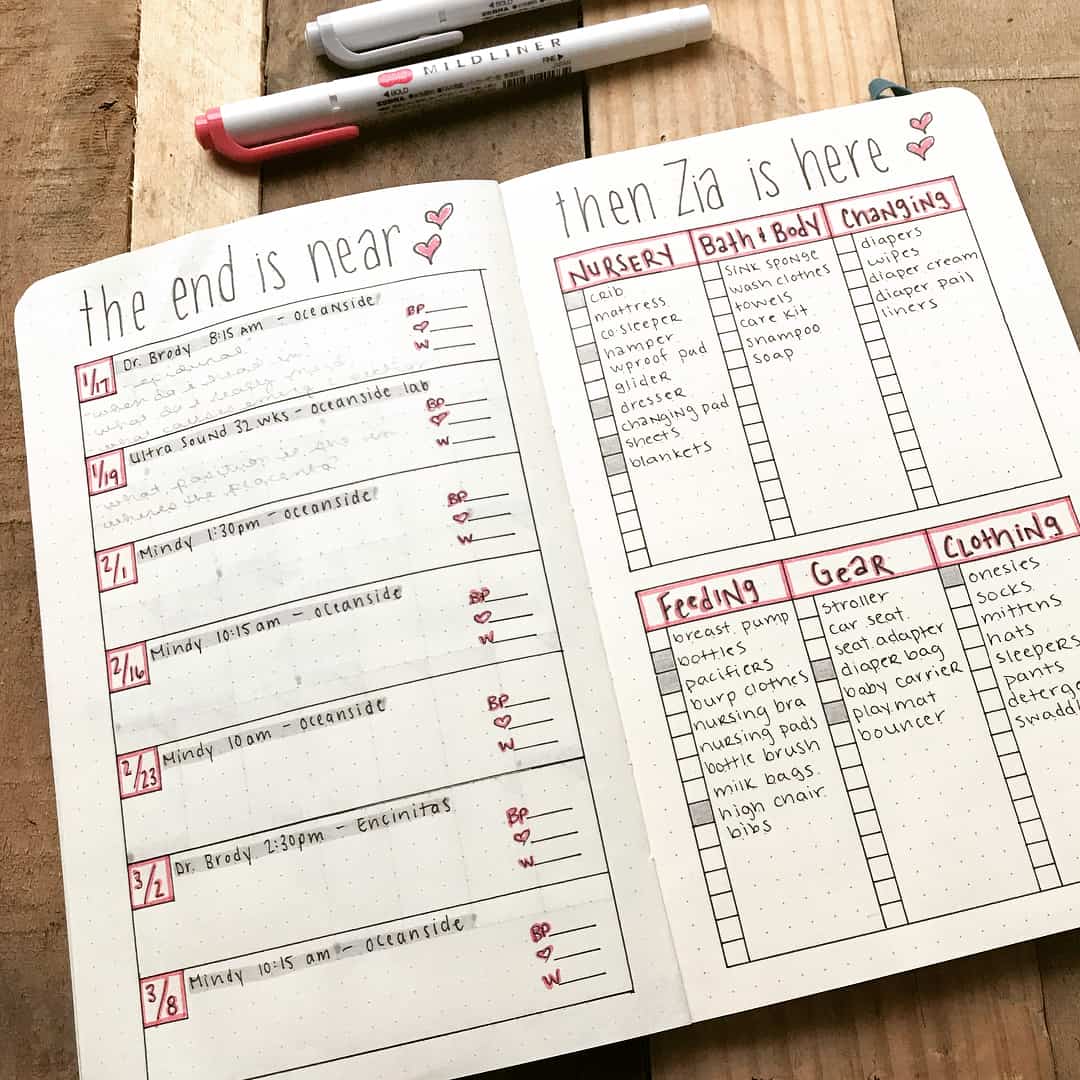 MILDLINER
◀BOLD
ZEBRA
FINE▶
JAPAN
◀BOLD
ZEBRA
the end is near
1/17
Dr. Brody 8:15 am - oceanside
BP
W
epidural
what do I really need
1/19
Ultra Sound 32 wks - oceanside lab
BP
W
what position is she in
where's the placenta
2/1
Mindy 1:30pm - oceanside
BP
W
2/16
Mindy 10:15 am - oceanside
BP
W
2/23
Mindy 10am - oceanside
BP
W
3/2
Dr. Brody 2:30pm - Encinitas
BP
W
3/8
Mindy 10:15 am - oceanside
BP
W
then Zia is here
NURSERY
crib
mattress
co-sleeper
hamper
wproof pad
glider
dresser
changing pad
sheets
blankets
Bath & Body
sink sponge
wash clothes
towels
care kit
shampoo
soap
Changing
diapers
wipes
diaper cream
diaper pail
liners
Feeding
breast pump
bottles
pacifiers
burp clothes
nursing bra
nursing pads
bottle brush
milk bags
high chair
bibs
Gear
stroller
car seat
seat adapter
diaper bag
baby carrier
playmat
bouncer
Clothing
onesies
socks
mittens
hats
sleepers
pants
deterge
swaddl